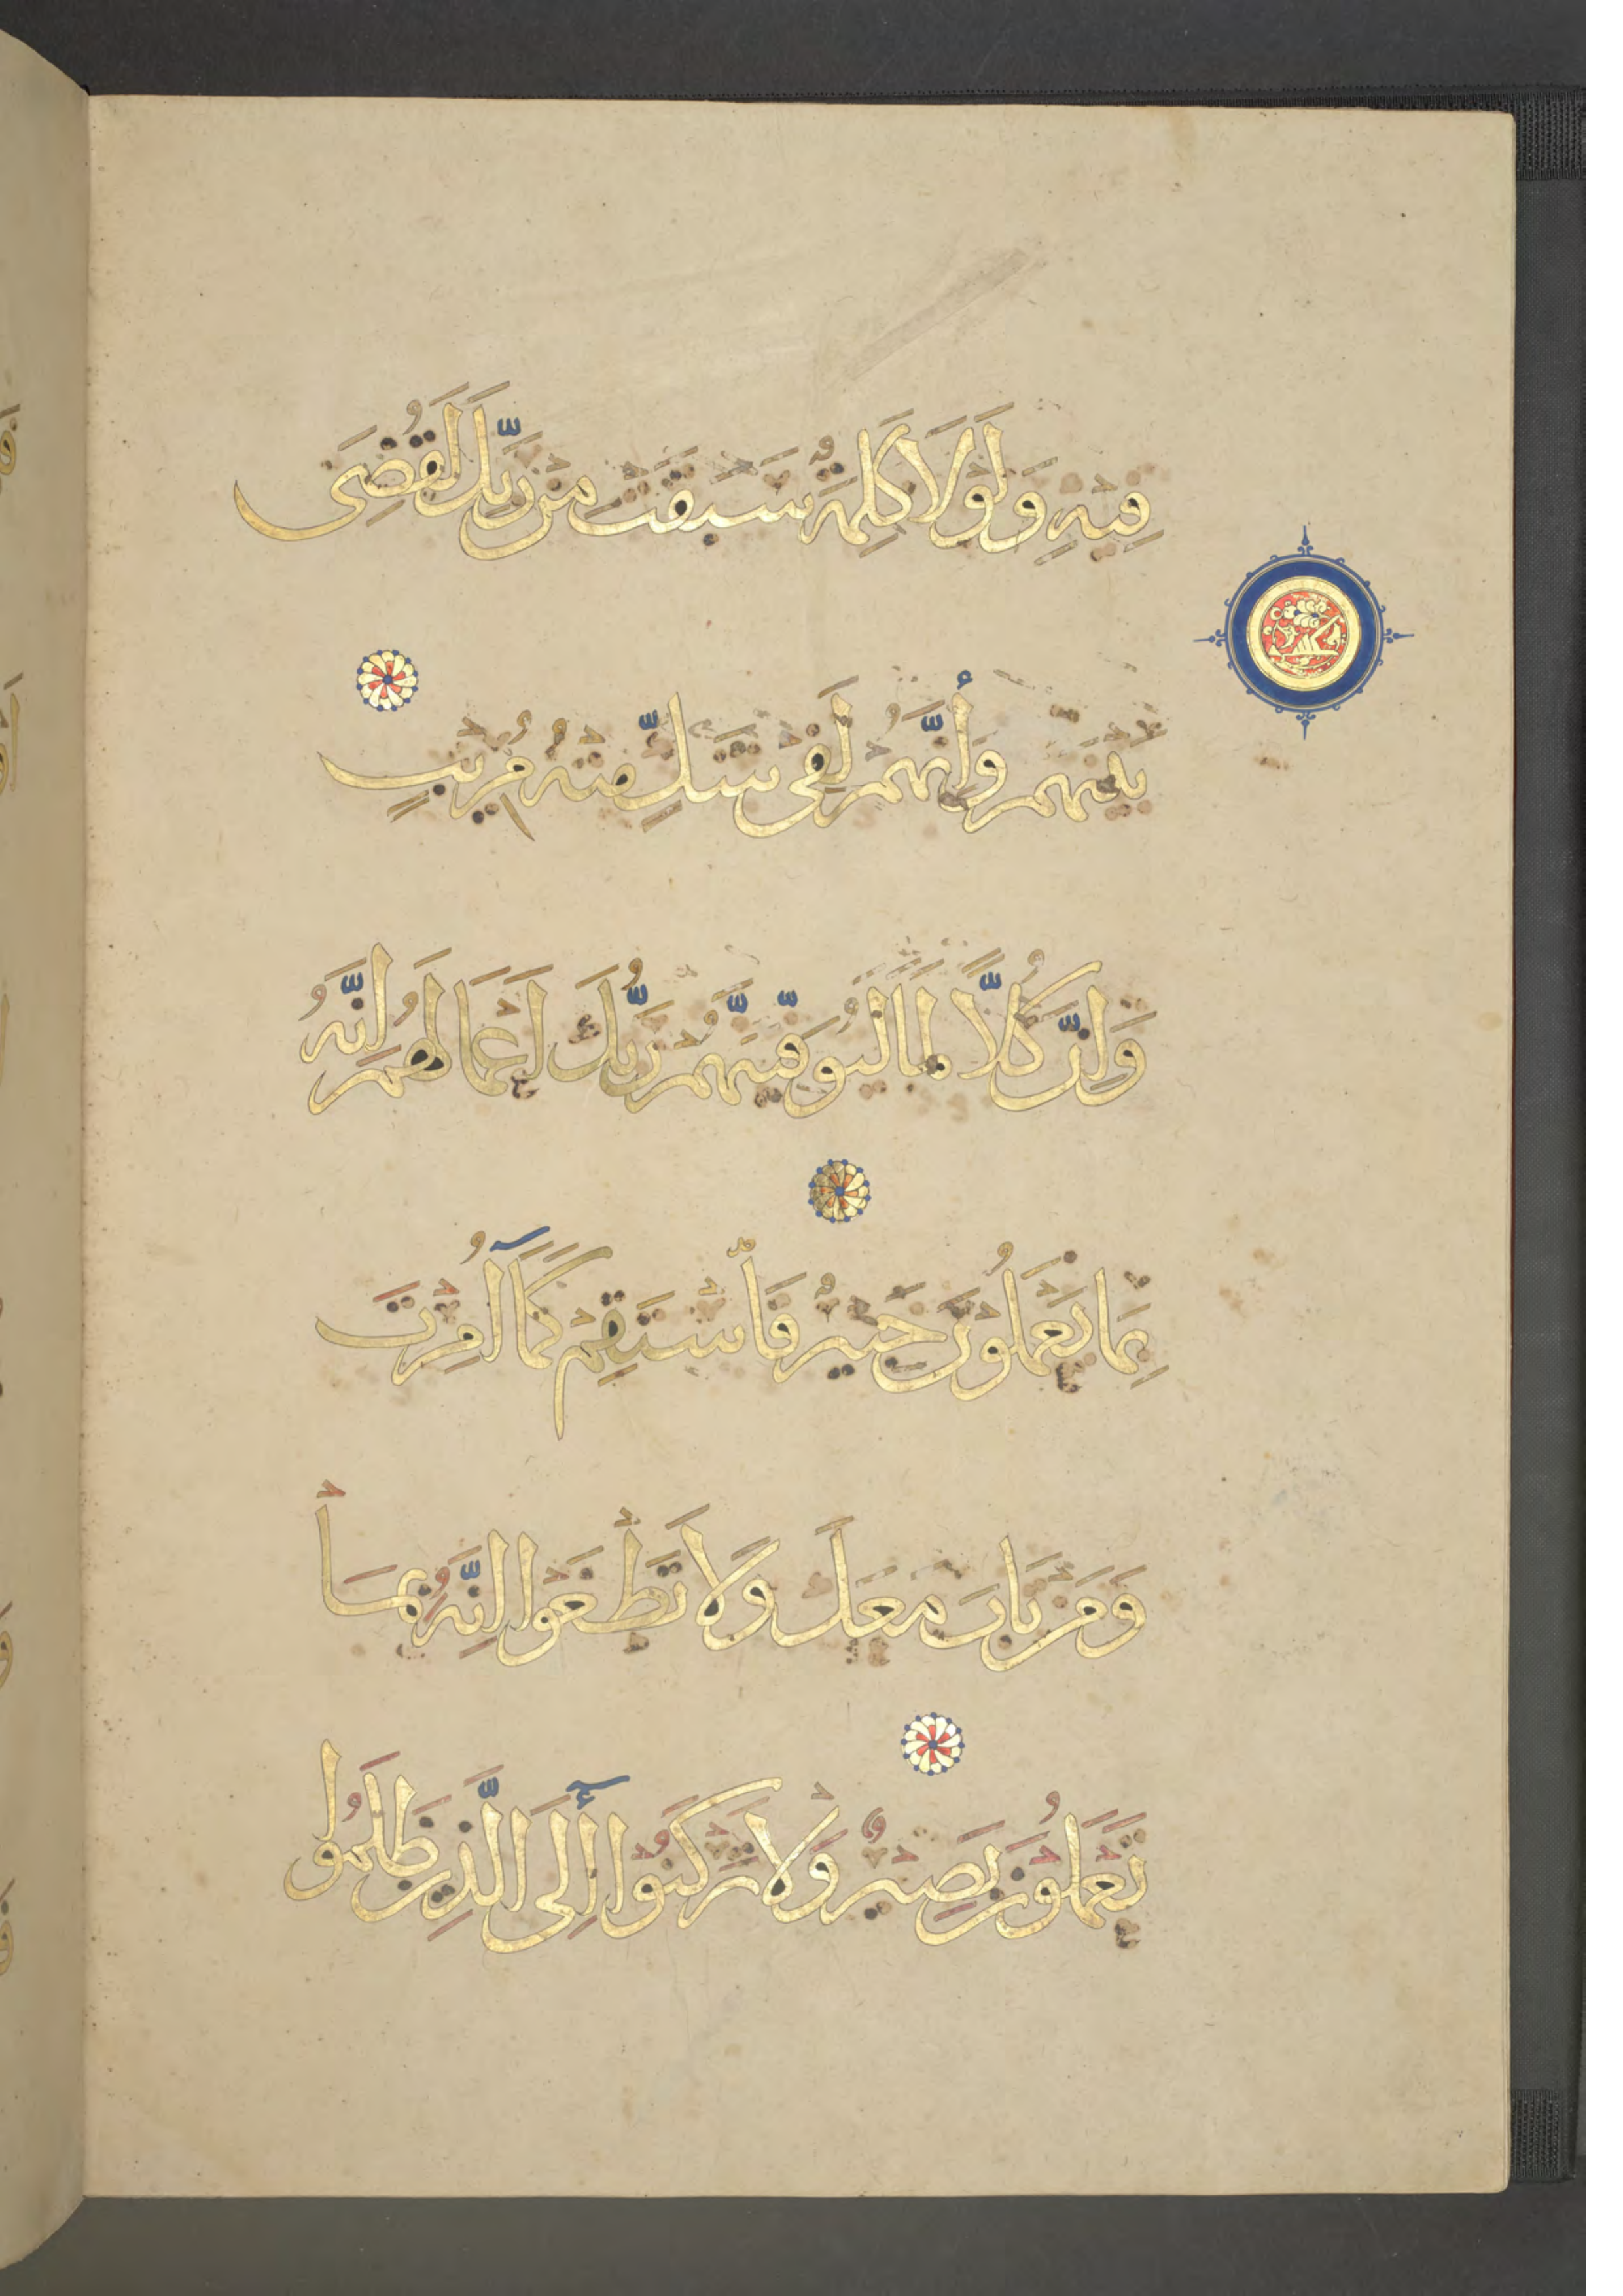 فِيهِ وَلَوْلَا كَلِمَةٌ سَبَقَتْ مِن رَّبِّكَ لَقُضِىَ
بَيْنَهُمْ وَإِنَّهُمْ لَفِى شَكٍّ مِّنْهُ مُرِيبٍ
وَإِنَّ كُلًّا لَمَّا لَيُوَفِّيَنَّهُمْ رَبُّكَ أَعْمَالَهُمْ إِنَّهُ
بِمَا يَعْمَلُونَ خَبِيرٌ فَاسْتَقِمْ كَمَآ أُمِرْتَ
وَمَن تَابَ مَعَكَ وَلَا تَطْغَوْا إِنَّهُ بِمَا
تَعْمَلُونَ بَصِيرٌ وَلَا تَرْكَنُوٓا إِلَى الَّذِينَ ظَلَمُوا